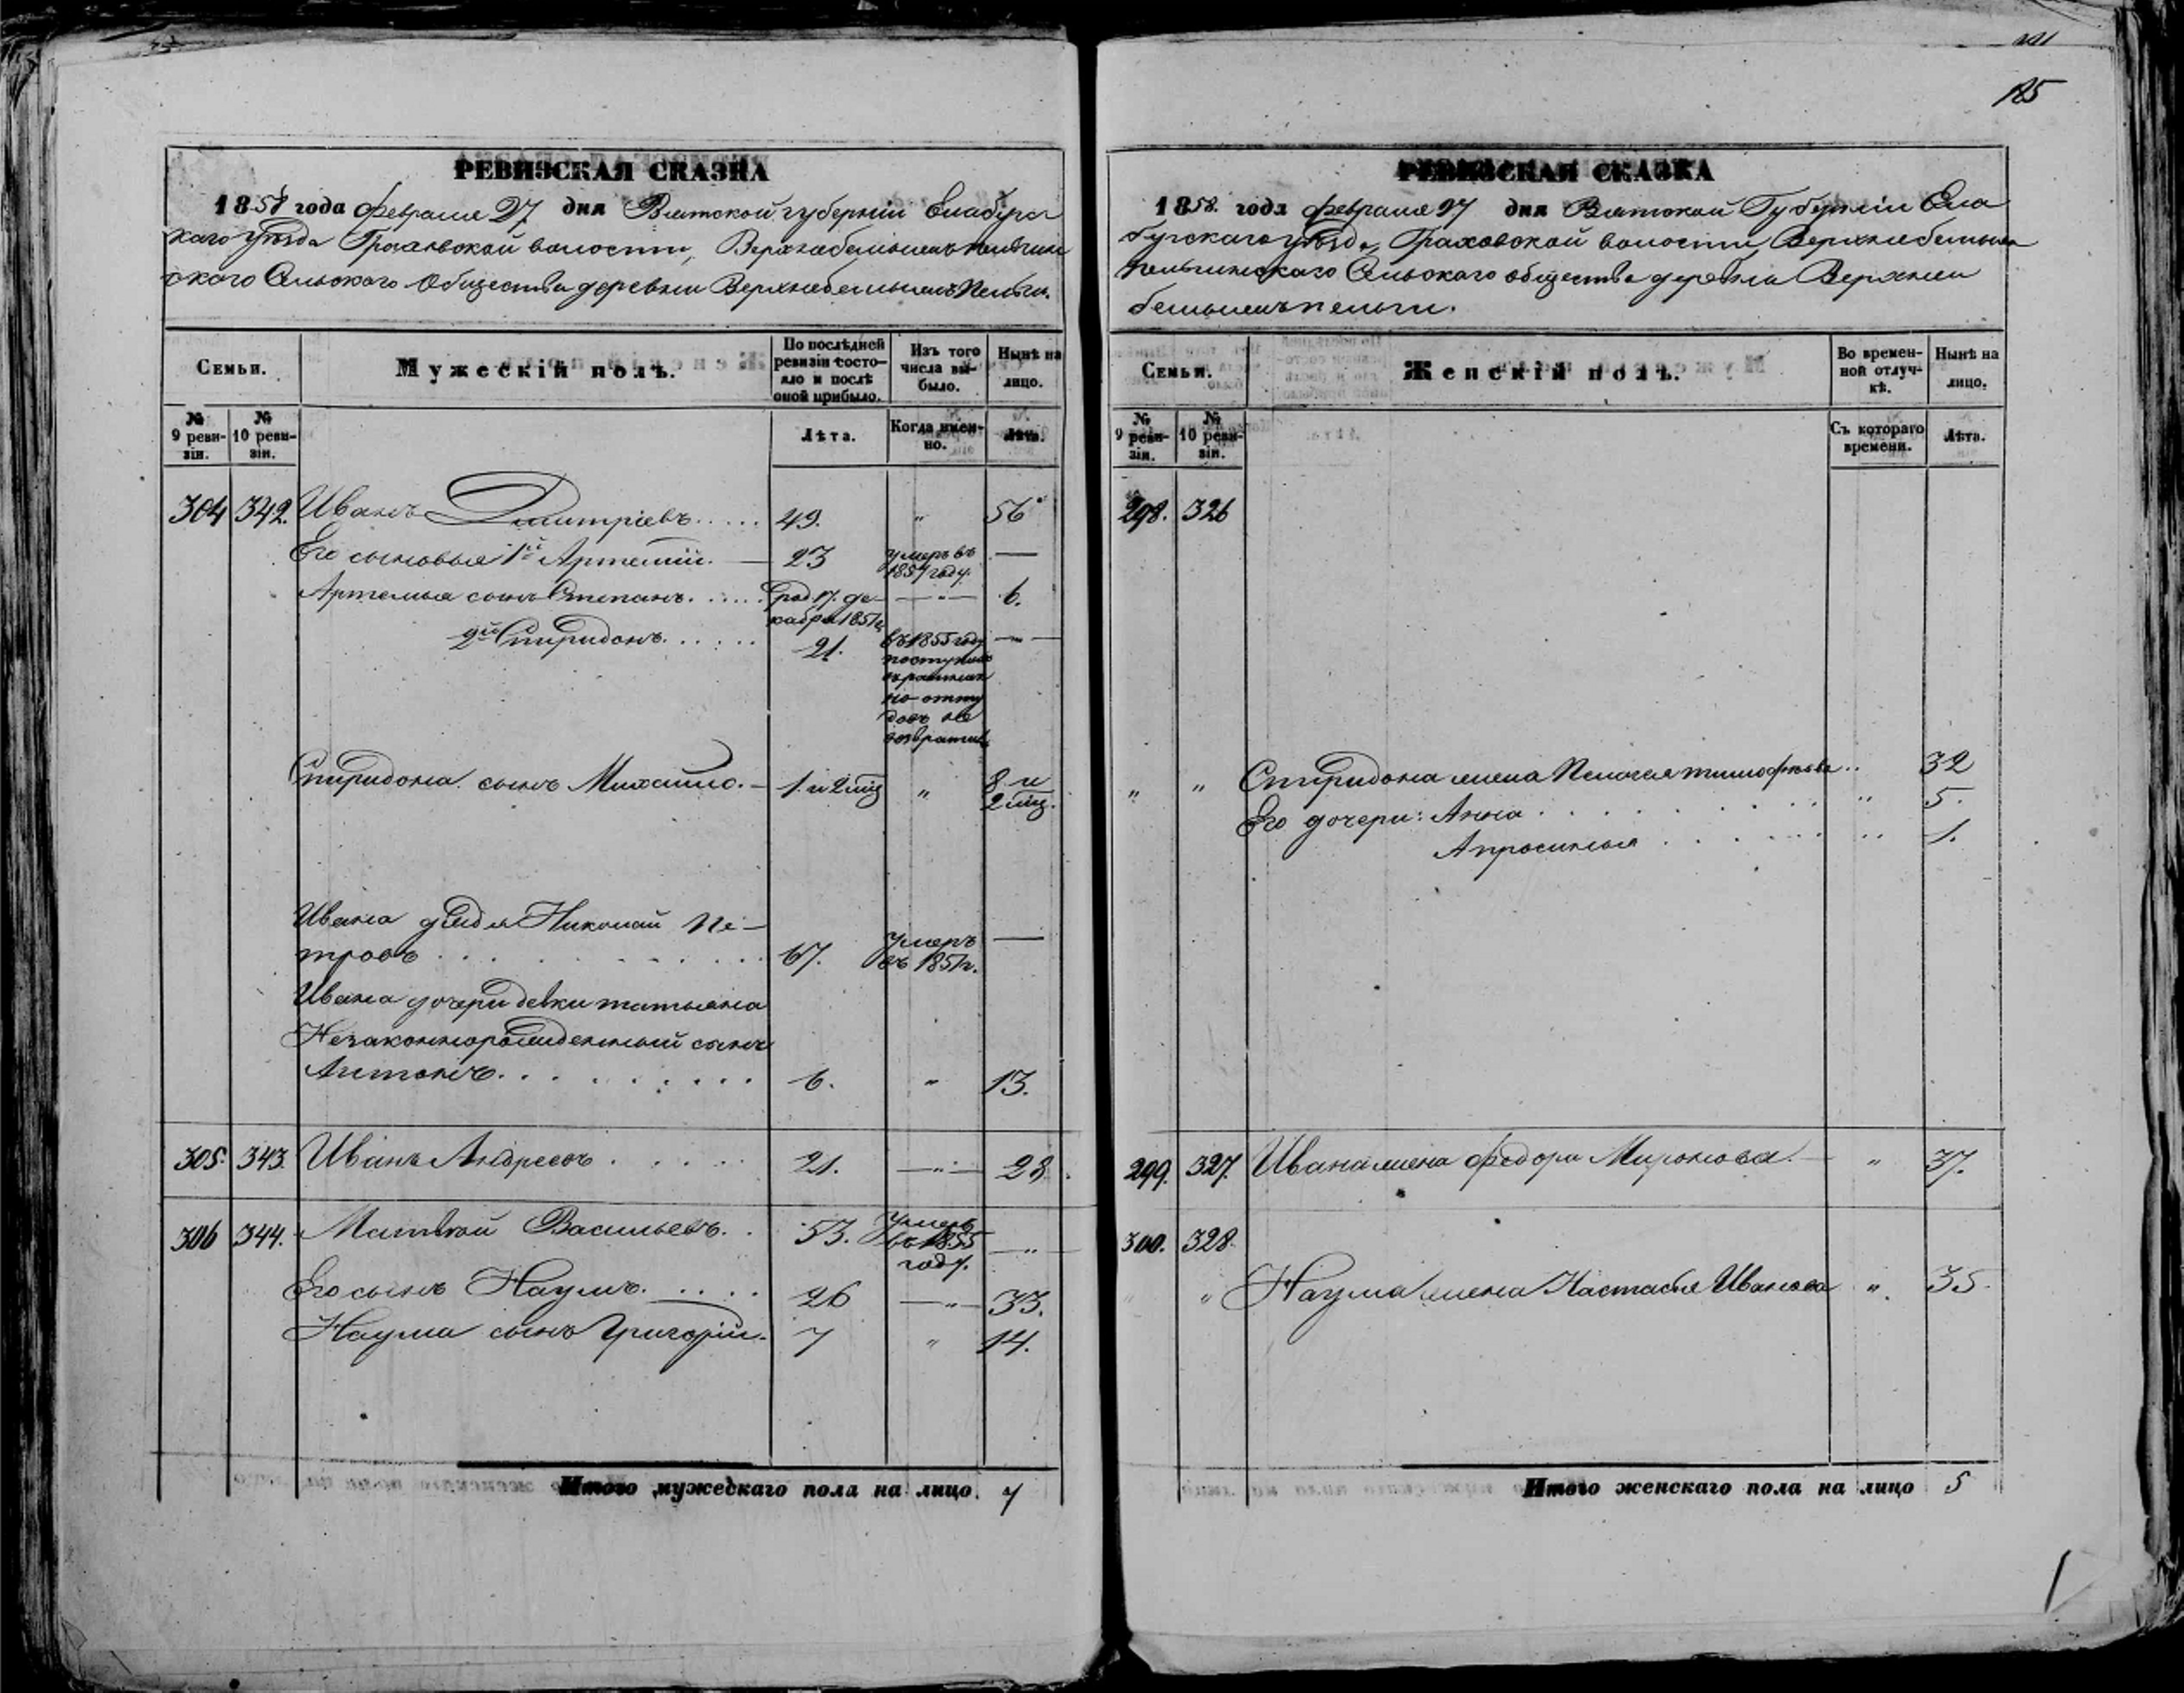 185
РЕВИЗСКАЯ СКАЗКА
1858 года февраля 27 дня Вятской губерніи Елабужс
каго уѣзда Граховской волости, Верхнебемышевъ пельгин
скаго Сельскаго Общества деревни Верхнебемышевъ Пельги.
Семьи.
Мужескій полъ.
По послѣдней ревизіи состояло и послѣ оной прибыло.
Изъ того числа выбыло.
Нынѣ на лицо.
№ 9 ревизіи.
№ 10 ревизіи.
Лѣта.
Когда именно.
Лѣта.
304 342. Иванъ Дмитріевъ..... 49. " 56
Его сыновья 1й Артемій. — 23 умеръ въ 1857 году. —
Артемья сынъ Степанъ...... род 17. декабря 1851 г. —"— 6.
2й Спиридонъ...... 21. въ 1855 году
поступилъ
въ
но отту
довъ не
возвратил
— —
Спиридона сынъ Михайло. — 1. и 2 мц " 8 и 2 мц.
Ивана дядя Николай Пе—
тровъ . . . . . 67. умеръ въ 1851 г. —
Ивана дочери девки татьяна
Незаконнорожденный сынъ
Антонъ. . . . . . 6. " 13.
305. 343. Иванъ Андреевъ . . . . . 21. —"— 28.
306 344. Матвей Васильевъ. . 53. умеръ въ 1855 году. —"—
Его сынъ Наумъ. . . . . 26 —"— 33.
Наума сынъ Григорій. 7 " 14.
Итого мужескаго пола на лицо 7
РЕВИЗСКАЯ СКАЗКА
1858. года февраля 27 дня Вятской Губерніи Ела
бугскаго уѣзда, Граховской волости Верхнебемыш
пельгинскаго Сельскаго общества деревни Верхней
бемышъ пельги.
Семьи.
Женскій полъ.
Во временной отлучкѣ.
Нынѣ на лицо.
№ 9 ревизіи.
№ 10 ревизіи.
Съ котораго времени.
Лѣта.
298. 326
" " Спиридона жена Пелагея тимофѣева .. 32
Его дочери: Анна . . . . . " 5.
Апросинья . . . . . " 1.
299. 327. Ивана жена федора Миронова. — " 37.
300. 328.
" Наума жена Настасья Иванова ". 35.
Итого женскаго пола на лицо 5